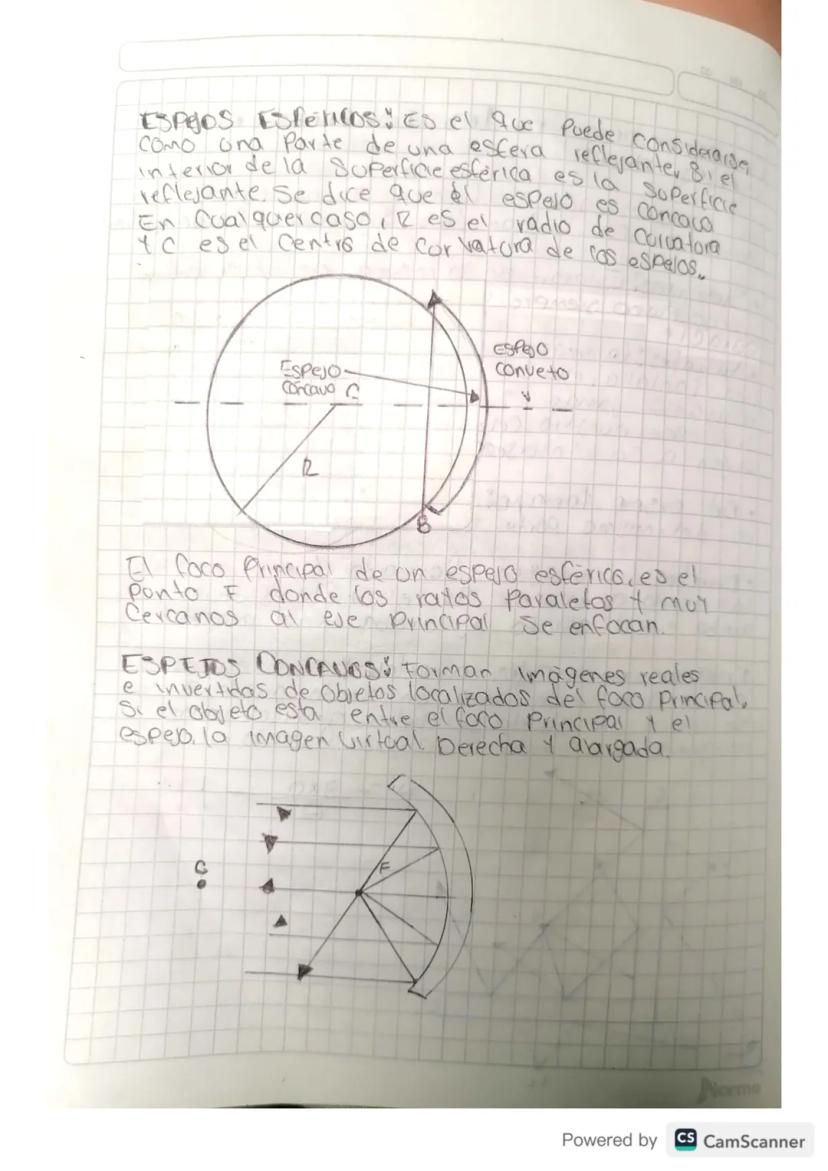 ESPEJOS ESFÉRICOS: Es el que Puede considerarse
como una Parte de una esfera reflejante, Si el
interior de la Superficie esférica es la Superficie
reflejante. Se dice que él espejo es concavo
En Cualquier caso, R es el radio de Curvatura
Y C es el Centro de Corvatura de los espejos.
ESPEJO
CONVETO
ESPEJO
concavo C
V
R
B
El foco Principal de un espejo esférico, es el
Punto F donde los rayos Paralelos Y muy
Cercanos al eje Principal Se enfocan.
ESPEJOS CONCAVOS: Forman imágenes reales
e invertidas de objetos localizados del foco Principal.
Si el objeto esta entre el foco Principal Y el
espejo, la imagen Virtual Derecha Y alargada.
F
C
Norma
Powered by CS CamScanner